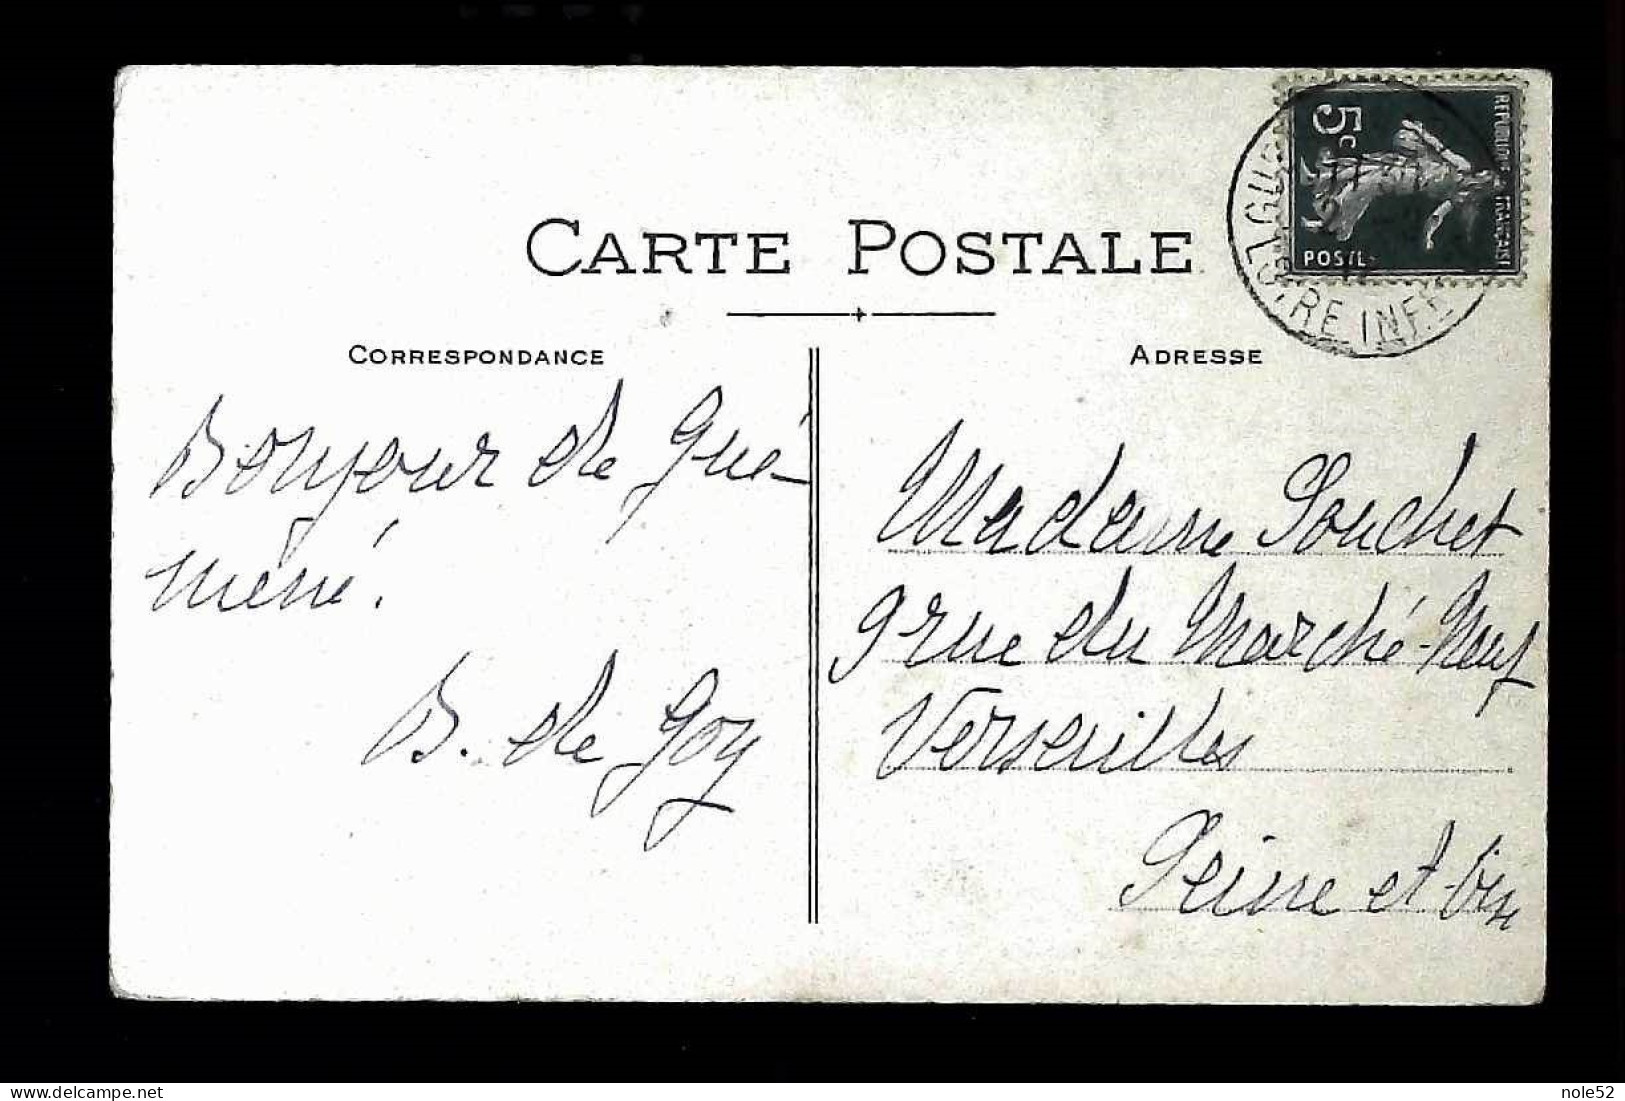 CARTE POSTALE
CORRESPONDANCE
Bonjour de Gué-
mené.
B. de Goy
ADRESSE
Madame Souchet
9 rue du Marché-Neuf
Versailles
Seine et Oise
5c
REPUBLIQUE FRANÇAISE
POSTES
LOIRE INFRE
delcampe.net
nole52